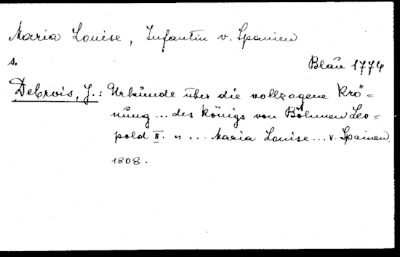 Maria Louise, Infantin v. Spanien
s. Blau 1774
Debrois, J.: Urkunde über die vollzogene Krö=
nung ... des Königs von Böhmen Leo=
pold II. u ... Maria Louise ... v. Spanien.
1808.